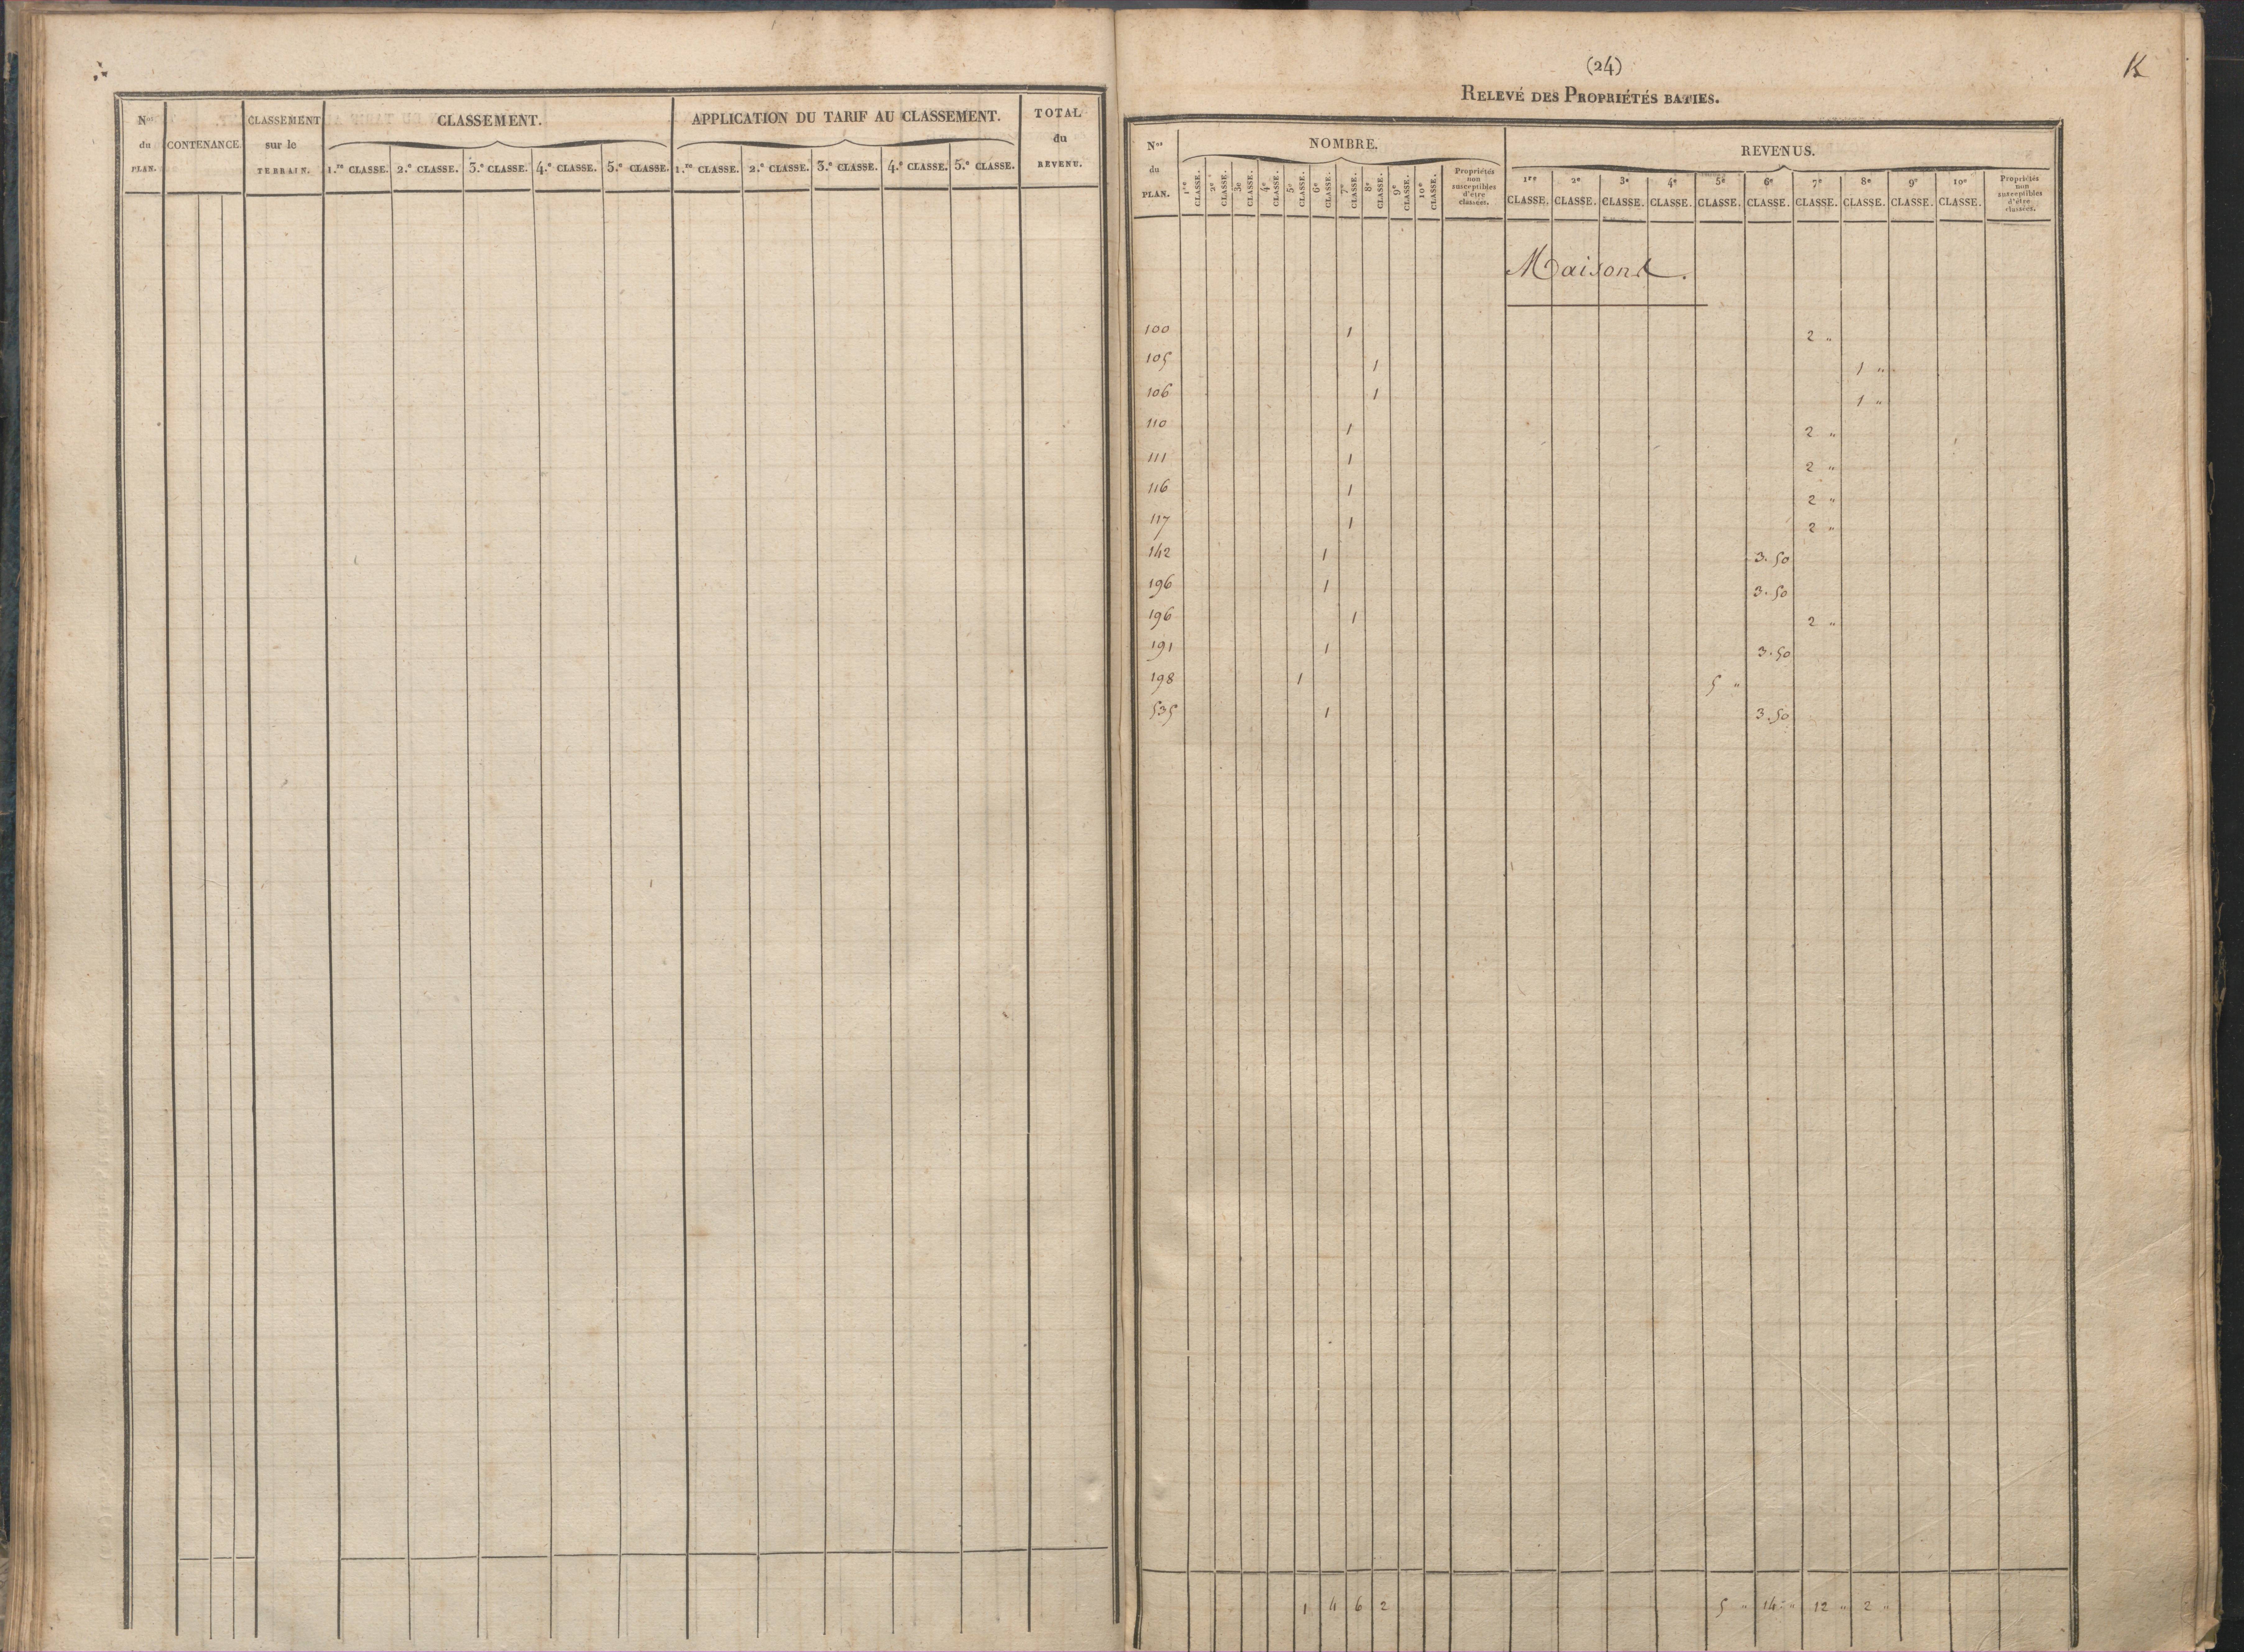 N.os du PLAN. CONTENANCE. CLASSEMENT sur le TERRAIN. CLASSEMENT. APPLICATION DU TARIF AU CLASSEMENT. TOTAL du REVENU.
1.re CLASSE. 2.e CLASSE. 3.e CLASSE. 4.e CLASSE. 5.e CLASSE. 1.re CLASSE. 2.e CLASSE. 3.e CLASSE. 4.e CLASSE. 5.e CLASSE.
(24)
K
RELEVÉ DES PROPRIÉTÉS BATIES.
Nos du PLAN. NOMBRE. REVENUS.
1re CLASSE. 2e CLASSE. 3e CLASSE. 4e CLASSE. 5e CLASSE. 6e CLASSE. 7e CLASSE. 8e CLASSE. 9e CLASSE. 10e CLASSE. Propriétés non susceptibles d'être classées. 1re CLASSE. 2e CLASSE. 3e CLASSE. 4e CLASSE. 5e CLASSE. 6e CLASSE. 7e CLASSE. 8e CLASSE. 9e CLASSE. 10e CLASSE. Propriétés non susceptibles d'être classées.
Maisons.
100 1 2 "
105 1 1 "
106 1 1 "
110 1 2 "
111 1 2 "
116 1 2 "
117 1 2 "
142 1 3.50
196 1 3.50
196 1 2 "
191 1 3.50
198 1 5 "
535 1 3.50
1 4 6 2 5 " 14 " 12 " 2 "